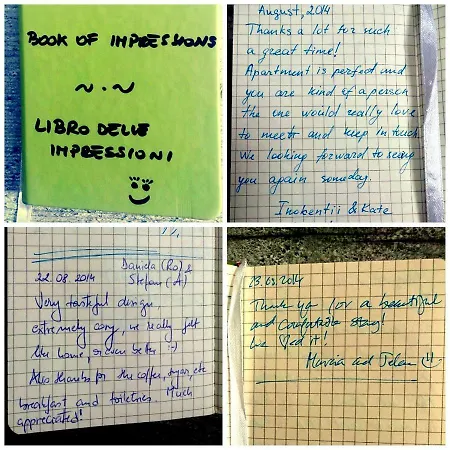 BOOK OF IMPRESSIONS
~.~
LIBRO DELLE
IMPRESSIONI
August, 2014
Thanks a lot for such
a great time!
Apartment is perfect and
you are kind of a person
the one would really love
to meet and keep in touch
We looking forward to seeing
you again someday.
Inokentii & Kate
Daniela (Ro) &
22.08.2014 Stefano (A)
Very tasteful design,
extremely cosy, we really felt
like home, or even better :-)
Also thanks for the coffee, sugar, etc
breakfast and toiletries. Much
appreciated!
23.09.2014
Thank you for a beautiful
and comfortable stay!
We loved it!
and